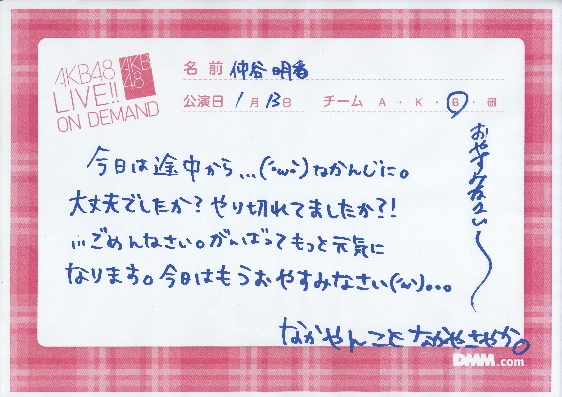 AKB48
LIVE!!
ON DEMAND
AKB
48
名前 仲谷明香
公演日 1月13日 チーム A・K・B・研
おやすみなさい〜
今日は途中から...(´・ω・`)なかんじに。
大丈夫でしたか?やり切れてましたか?!
...ごめんなさい。がんばってもっと元気に
なります。今日はもうおやすみなさい(´ω`)...
なかやんことなかやさやか。
DMM.com